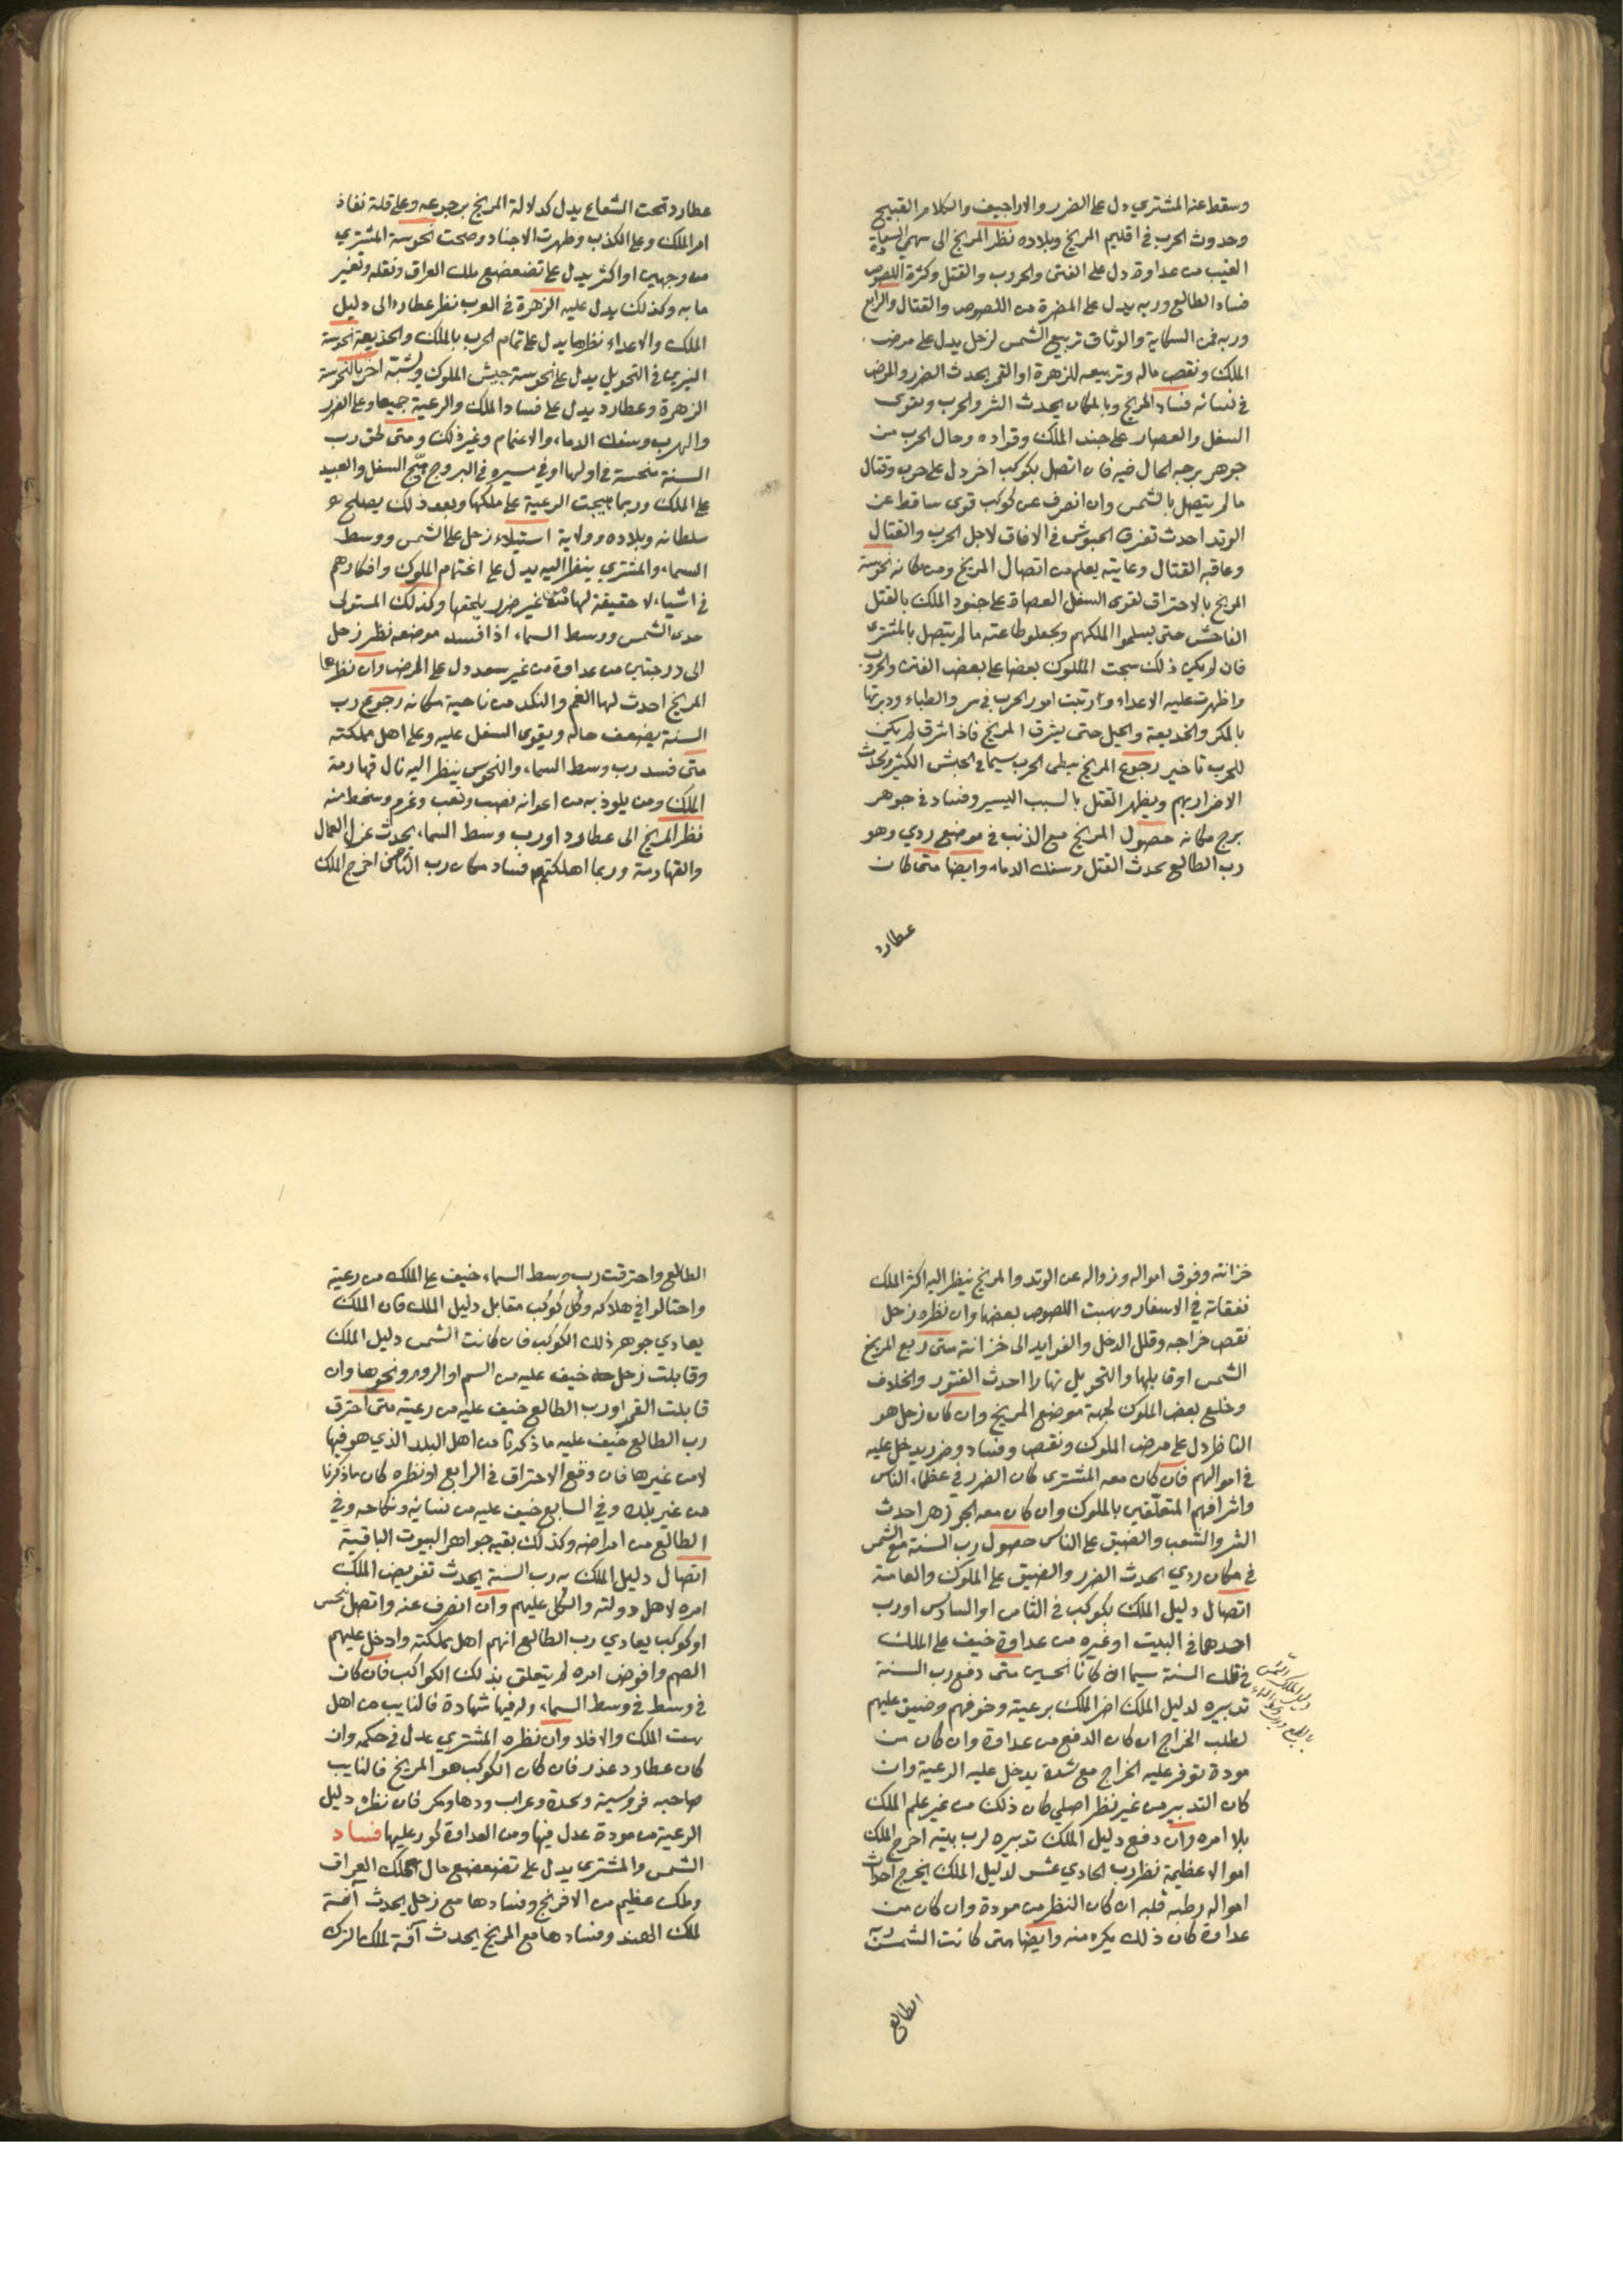 وسقط عند المشتري دل على الضرر والاراجيف والكلام القبيح
وحدوث الحرب في اقليم المريخ وبلاده نظر المريخ الى سهمي السعادة
الغيب من عداوة دل على الفتن والحروب والقتل وكثرة اللصوص
فساد الطالع وربه يدل على المضرة من اللصوص والقتال والرابع
وربه فمن السكاية والوثاق تربيع الشمس لزحل يدل على مرض
الملك ونقص ماله وتربيعه للزهرة او القمر يحدث الضرر والمرض
في نسائه فساد المريخ وبالمكان يحدث الشر والحرب وتقوى
السفل والعصار على جند الملك وقواده وحال الحرب من
جوهر برجه الحال فيه فان اتصل بكوكب اخر دل على حرب وقتال
مالم يتصل بالشمس وان انصرف عن كوكب قوى ساقط عن
الوتد احدث تفرق الجيوش في الافاق لاجل الحرب والقتال
وعاقبه القتال وعايته يعلم من اتصال المريخ ومن مكانه نحوسة
المريخ بالاحتراق تقوى السفل العصاة على جنود الملك بالقتل
الفاحش حتى يسلموا الملكهم ويجعلوطاعته مالم يتصل بالمشترى
فان لم يكن ذلك سجت الملوك بعضا على بعض الفتن والحروب
واظهرت عليه الاعداء وارتبت امور الحرب في سر والطباء ودبرتها
بالمكر والخديعة والحيل حتى يشرق المريخ فاذا شرق لم يكن
للحرب تاخير رجوع المريخ يبطى الحرب سيما في الجيش الكثير ويحدث
الاضرار بهم ويظهر القتل بالسبب اليسير وفساد في جوهر
برج مكانه حصول المريخ مع الذنب في موضع ردي وهو
رب الطالع يحدث القتل وسفك الدماء وايضا متى كان
عطارد
عطارد تحت الشعاع يدل كدلالة المريخ برجوعه وعلى قلة نفاذ
امر الملك وعلى الكذب وظهرت الاجناد وصحت نحوسة المشتري
من وجهين او اكثر يدل على تضعضع ملك العراق ونقله وتغير
ما به وكذلك يدل عليه الزهرة في العرب نظر عطارد الى دليل
الملك والاعداء نظرها يدل على تمام الحرب بالملك والخديعة نحوسة
النيرين في التحويل يدل على نحوسة جيش الملوك ولشبتة اخر بالنحوسة
الزهرة وعطارد يدل على فساد الملك والرعية جميعا وعلى الضرر
والهرب وسفك الدماء والاغتمام وغير ذلك ومتى لحق رب
السنة منحسة في اولها او في مسيره في البروج هيج السفل والعبيد
على الملك وربما هيجت الرعية على ملكها وبعد ذلك يصلح
سلطانه وبلاده وولاية استيلاء زحل على الشمس ووسط
السماء والمشتري ينظر اليه يدل على اغتمام الملوك وافكارهم
في اشياء لا حقيقة لها غير ضرر يلحقها وكذلك المستولى
على الشمس ووسط السماء اذا فسد موضعه نظر زحل
الى درجتين من عداوة من غير سعد دل على المرض وان نظرها
المريخ احدث لها الغم والنكد من ناحية مكانه رجوع رب
السنة يضعف حاله ويقوى السفل عليه وعلى اهل مملكته
متى فسد رب وسط السماء والنحوس ينظر اليه نال قهارمة
الملك ومن يلوذ به من اعوانه نصب وتعب وغرم وسخط منه
نظر المريخ الى عطارد او رب وسط السماء يحدث عزل العمال
والقهارمة وربما اهلكتهم فساد مكان رب الثامن اخرج الملك
خزانته وفوق امواله وزواله عن الوتد والمريخ ينظر اليه اكثر الملك
نفقاته في الاسفار ونهبت اللصوص بعضها وان نظره زحل
نقص خراجه وقلل الدخل والفوايد الى خزانته متى ربع المريخ
الشمس او قابلها والتحويل نهارا احدث الفتور والخلاف
وخلع بعض الملوك لجهة موضع المريخ وان كان زحل هو
الناظر دل على مرض الملوك ونقص وفساد وضرر يدخل عليه
في اموالهم فان كان معه المشترى كان الضرر في عظماء الناس
واشرافهم المتعلقين بالملوك وان كان معه الجوزهر احدث
الشر والشعب والضيق على الناس حصول رب السنة مع الشمس
في مكان ردي احدث الضرر والضيق على الملوك والعامة
اتصال دليل الملك بكوكب في الثامن او السادس او رب
احدهما في البيت او غيره من عداوة خيف على الملك
في تلك السنة سيما ان كانا نحسين متى دفع رب السنة
تدبيره لدليل الملك اضر الملك برعيته وخوفهم وضيق عليهم
لطلب الخراج ان كان الدفع من عداوة وان كان من
مودة توفر عليه الخراج مع شدة يدخل عليه الرعية وان
كان التدبير من غير نظر اصلي كان ذلك من غير علم الملك
بلا امره وان دفع دليل الملك تدبيره لرب بيته اخرج الملك
اموالا عظيمة نظر رب الحادي عشر لدليل الملك يخرج احداث
امواله بطيبة قلبه ان كان النظر من مودة وان كان من
عداوة كان ذلك بكره منه وايضا متى كانت الشمس ربة
الطالع
الطالع واحترقت رب وسط السماء خيف على الملك من رعيته
واحتالوا في هلاكه وكل كوكب مقابل دليل الملك فان الملك
يعادي جوهر ذلك الكوكب فان كانت الشمس دليل الملك
وقابلت زحل خيف عليه من السم او الروم ونحوها وان
قابلت القمر او رب الطالع خيف عليه من رعيته متى احترق
رب الطالع خيف عليه ما ذكرنا من اهل البلد الذي هو فيها
لا من غيرها فان وقع الاحتراق في الرابع او نظره كان ما ذكرنا
من غير بلده وفي السابع خيف عليه من نسائه ونكاحه وفي
الطالع من امراضه وكذلك بقيه جواهر البيوت الباقية
اتصال دليل الملك برب السنة يحدث تفويض الملك
امره لاهل دولته واتكل عليهم وان انصرف عنه واتصل بنحس
او كوكب يعادي رب الطالع اتهم اهل مملكته وادخل عليهم
الضيم وافوض امره لم يتعلق بذلك الكواكب فان كان
في وسط في وسط السماء وله فيها شهادة فالنايب من اهل
بيت الملك والا فلا وان نظره المشتري عدل في حكمه وان
كان عطارد غدر فان كان الكوكب هو المريخ فالنايب
صاحبه فروسية وحدة ودهاومكر فان نظره دليل
الرعية من مودة عدل فيها ومن العداوة يجور عليها فساد
الشمس والمشترى يدل على تضعضع حال ملك العراق
وملك عظيم من الافرنج وفسادها مع زحل يحدث آفة
لملك الهند وفسادها مع المريخ يحدث آفة لملك الترك